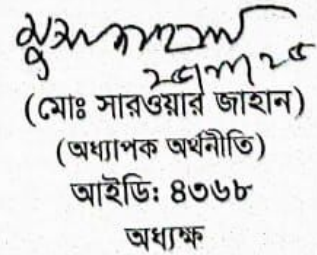 (মোঃ সারওয়ার জাহান)
(অধ্যাপক অর্থনীতি)
আইডিঃ ৪৩৬৮
অধ্যক্ষ